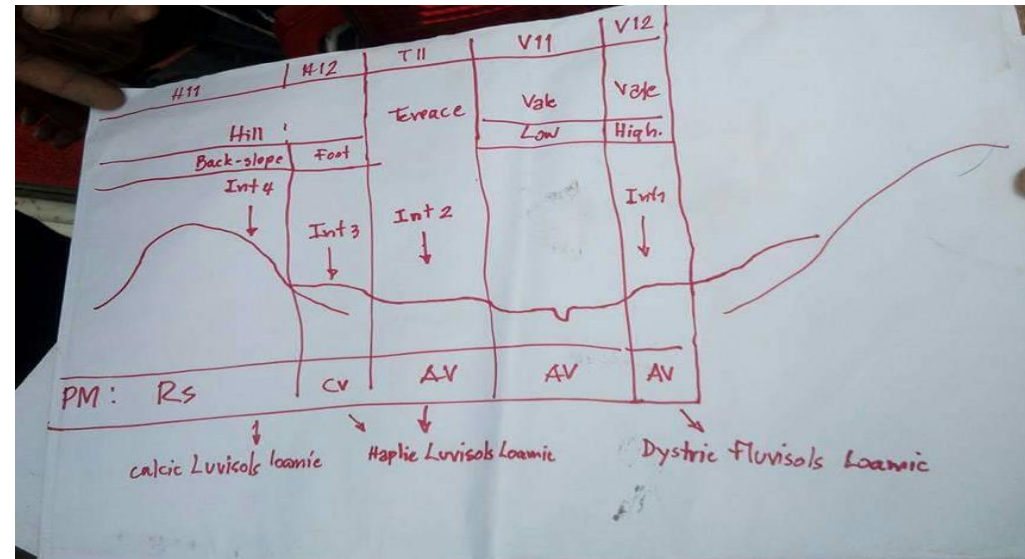 H11 H12 T11 V11 V12
Hill Terrace Vale Vale
Back-slope Foot Low High.
Int 4 Int 3 Int 2 Int1
PM: Rs CV AV AV AV
calcic Luvisols loamic Haplic Luvisols Loamic Dystric Fluvisols Loamic